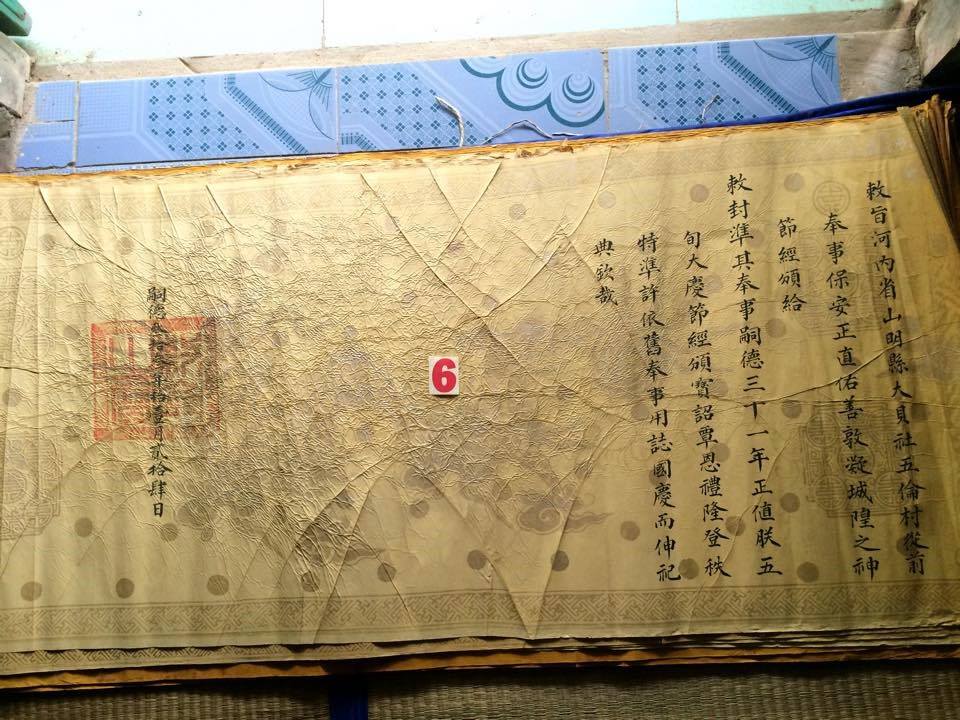 敕旨河內省山明縣大貝社五倫村從前
奉事保安正直佑善敦凝城隍之神
節經頒給
敕封準其奉事嗣德三十一年正值朕五
旬大慶節經頒寶詔覃恩禮隆登秩
特準許依舊奉事用誌國慶而伸祀
典欽哉
嗣德叁拾叁年拾壹月貳拾肆日
6